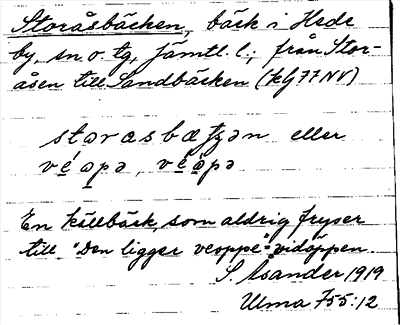 Storåsbäcken, bäck i Hede
by, sn. o. tg, Jämtl. l.; från Stor-
åsen till Sandbäcken (kG77NV)
eller
En källbäck, som aldrig fryser
till "Den ligger veoppe": vidöppen.
S. Åsander 1919
Ulma 755:12